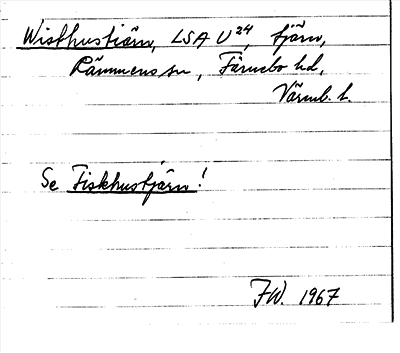 Wisthustiärn, LSA U²⁴, tjärn,
Rämmens sn, Färnebo hd,
Värml. l.
Se Fiskhustjärn!
FW. 1967